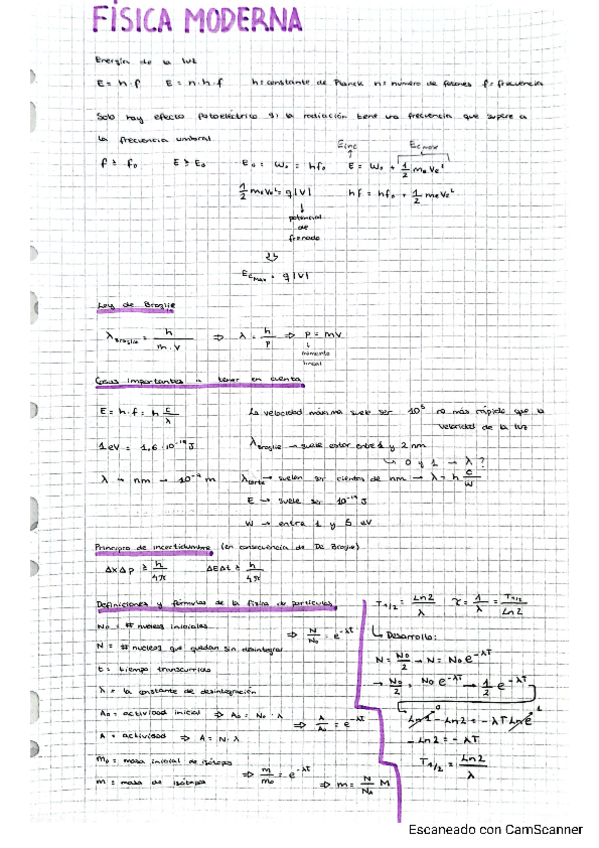 FÍSICA MODERNA
Energía de la luz
E = h·f   E = n·h·f   h: constante de Planck   n: número de fotones   f: frecuencia
Solo hay efecto fotoeléctrico si la radiación tiene una frecuencia que supere a
la frecuencia umbral
Einc   Ecmax
f ≥ f₀   E ≥ E₀   E₀ = W₀ = hf₀   E = W₀ + 1/2 mₑVe²
1/2 meVe² = q|V|   hf = hf₀ + 1/2 meVe²
potencial
de
frenado
Ecmax = q|V|
Ley de Broglie
λBroglie = h/m·v ⇒ λ = h/p ⇒ p = mv
momento
lineal
Cosas importantes a tener en cuenta
E = h·f = h c/λ   La velocidad máxima suele ser 10⁵ no más rápido que la
velocidad de la luz
1eV = 1,6·10⁻¹⁹ J   λBroglie → suele estar entre 1 y 2 nm
↳ 0 y 1 → λ?
λ → nm → 10⁻⁹ m   λcorte → suelen ser cientos de nm → λ = h c/W
E → suele ser 10⁻¹⁹ J
W → entre 1 y 5 eV
Principio de incertidumbre (en consecuencia de De Broglie)
ΔxΔp ≥ h/4π   ΔEΔt ≥ h/4π
Definiciones y fórmulas de la física de partículas
N₀ = # núcleos iniciales
⇒ N/N₀ = e^-λT
N = # núcleos que quedan sin desintegrar
t = tiempo transcurrido
λ = la constante de desintegración
A₀ = actividad inicial ⇒ A₀ = N₀·λ
⇒ A/A₀ = e^-λT
A = actividad ⇒ A = N·λ
m₀ = masa inicial de isótopo
⇒ m/m₀ = e^-λT
m = masa de isótopo
⇒ m = N/NA M
T1/2 = Ln2/λ   τ = 1/λ = T1/2/Ln2
↳ Desarrollo:
N = N₀/2 → N = N₀e^-λT
→ N₀/2 = N₀e^-λT → 1/2 = e^-λT
Ln1 - Ln2 = -λT Lne
0   1
-Ln2 = -λT
T1/2 = Ln2/λ
Escaneado con CamScanner